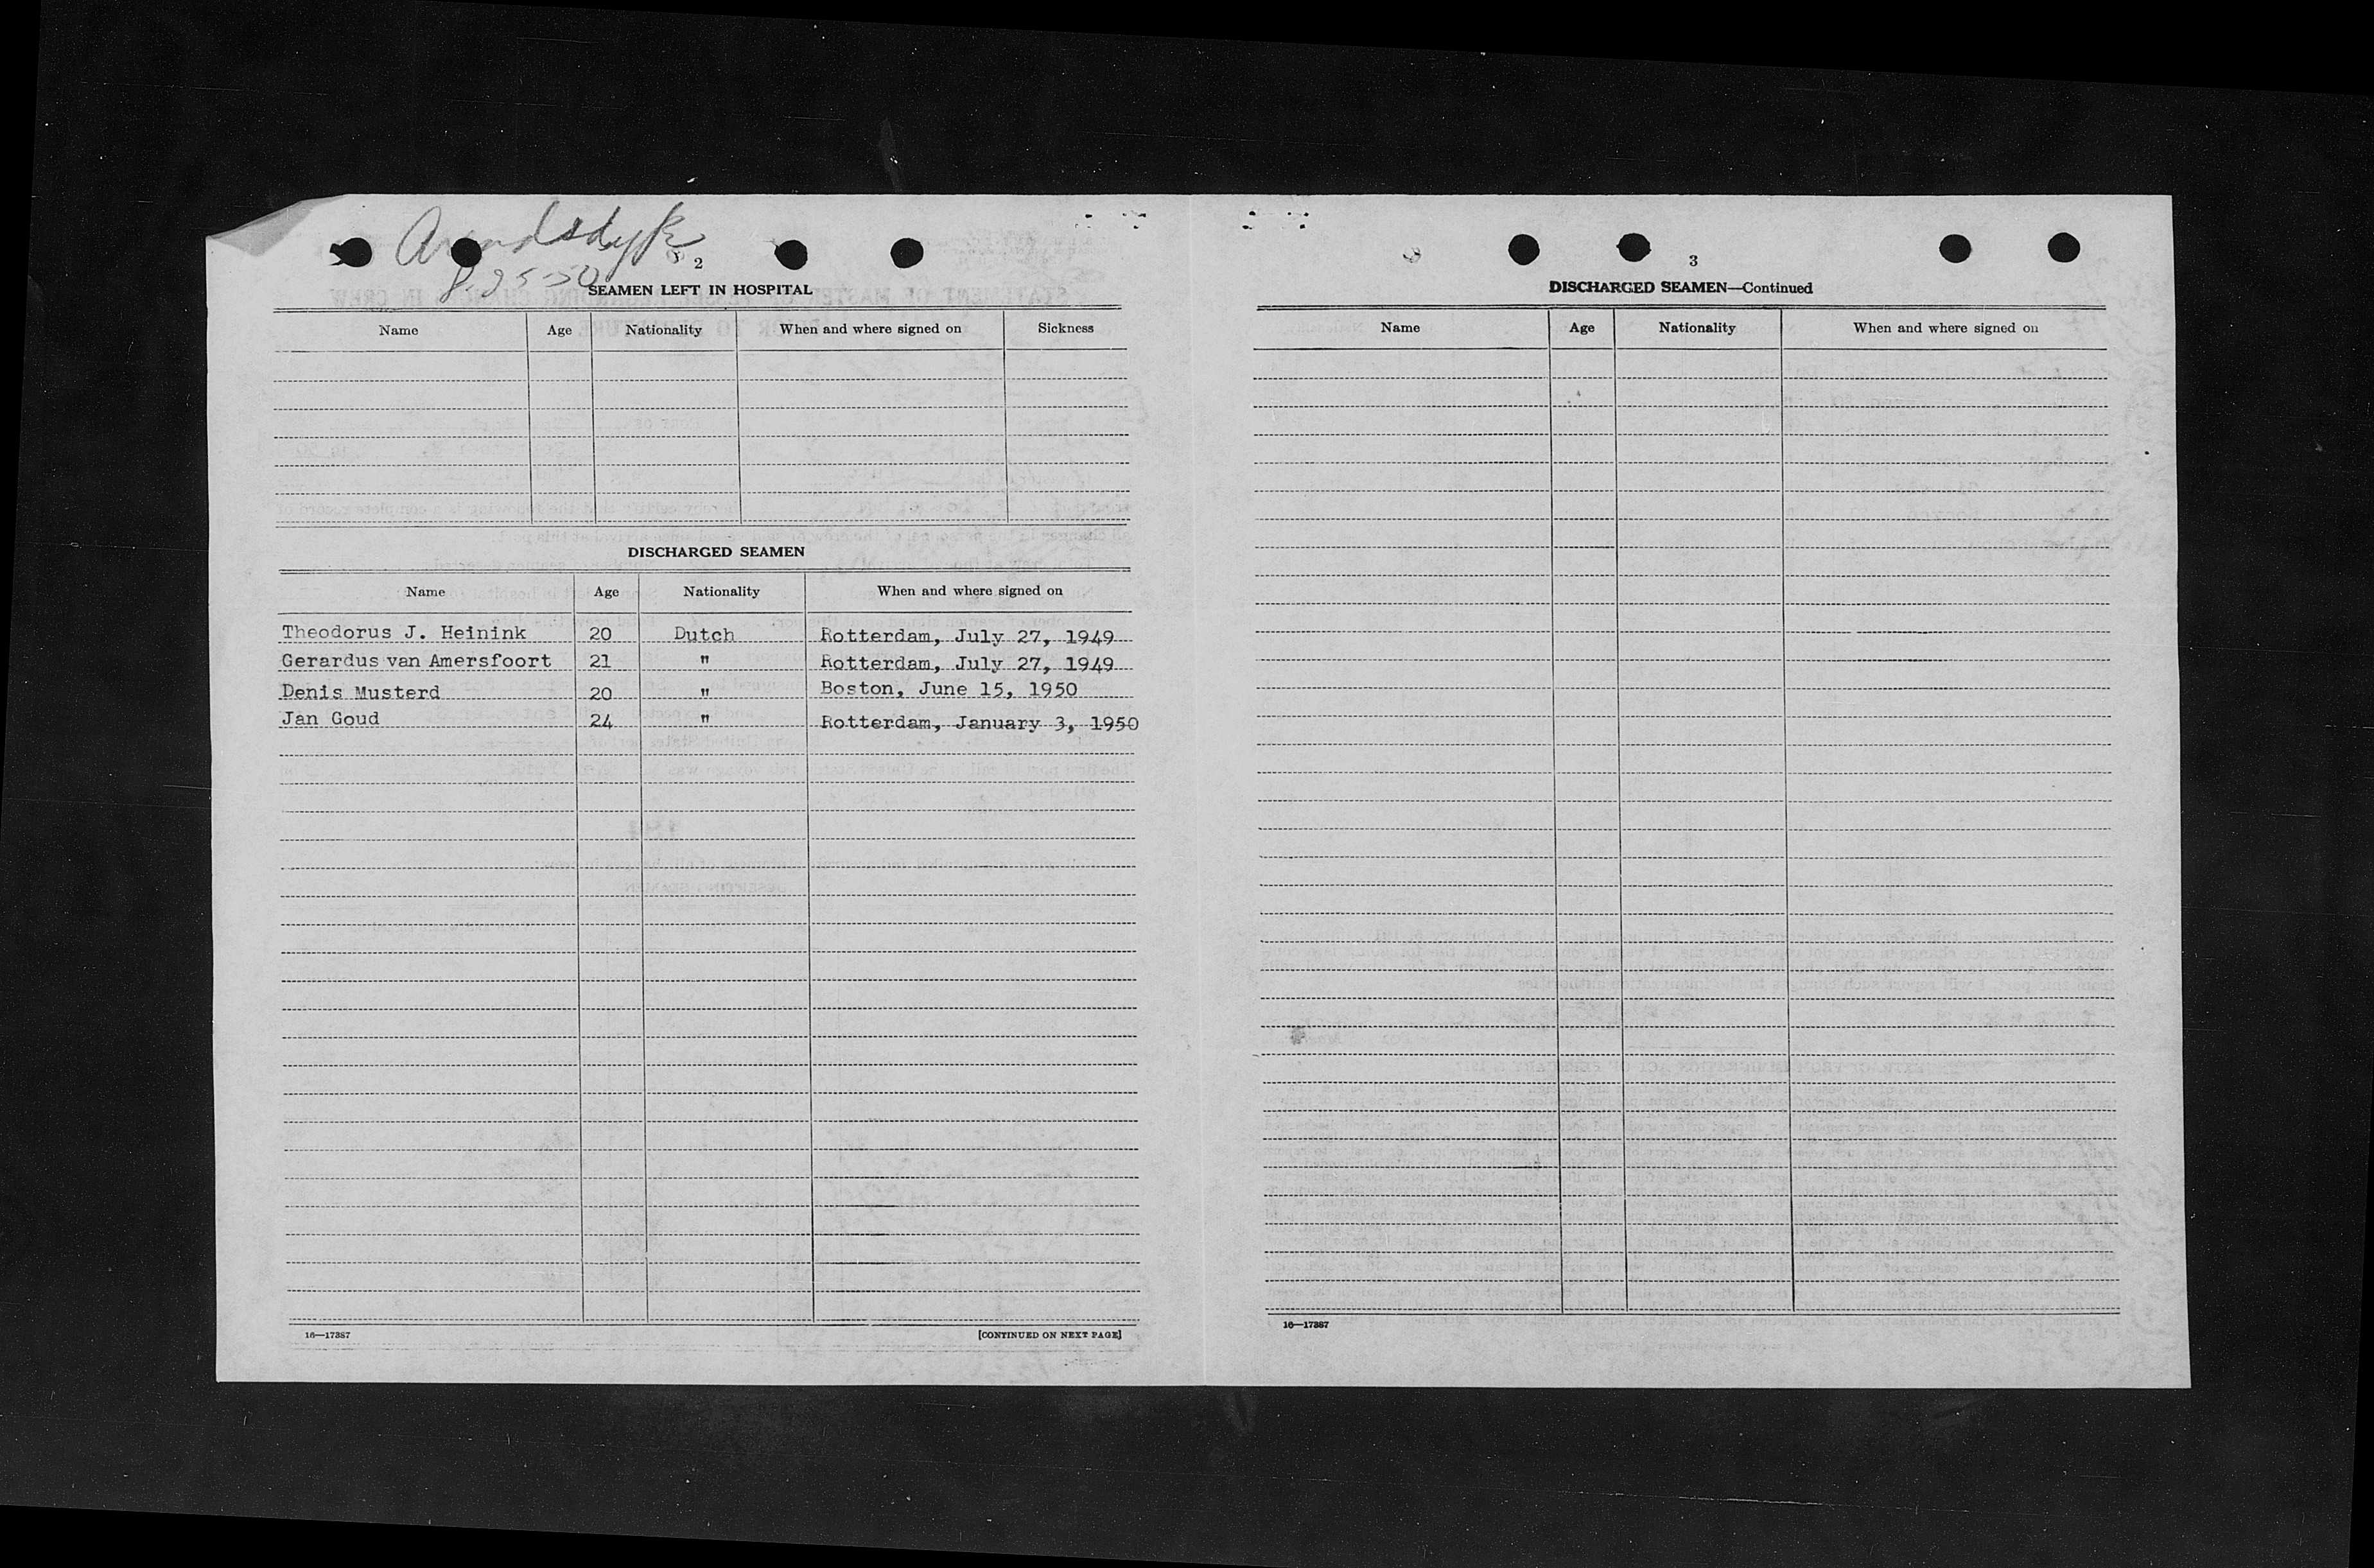 Arendsdyk
8-25-50
2
SEAMEN LEFT IN HOSPITAL
Name Age Nationality When and where signed on Sickness
DISCHARGED SEAMEN
Name Age Nationality When and where signed on
Theodorus J. Heinink 20 Dutch Rotterdam, July 27, 1949
Gerardus van Amersfoort 21 " Rotterdam, July 27, 1949
Denis Musterd 20 " Boston, June 15, 1950
Jan Goud 24 " Rotterdam, January 3, 1950
16—17387 [CONTINUED ON NEXT PAGE]
3
DISCHARGED SEAMEN—Continued
Name Age Nationality When and where signed on
16—17387